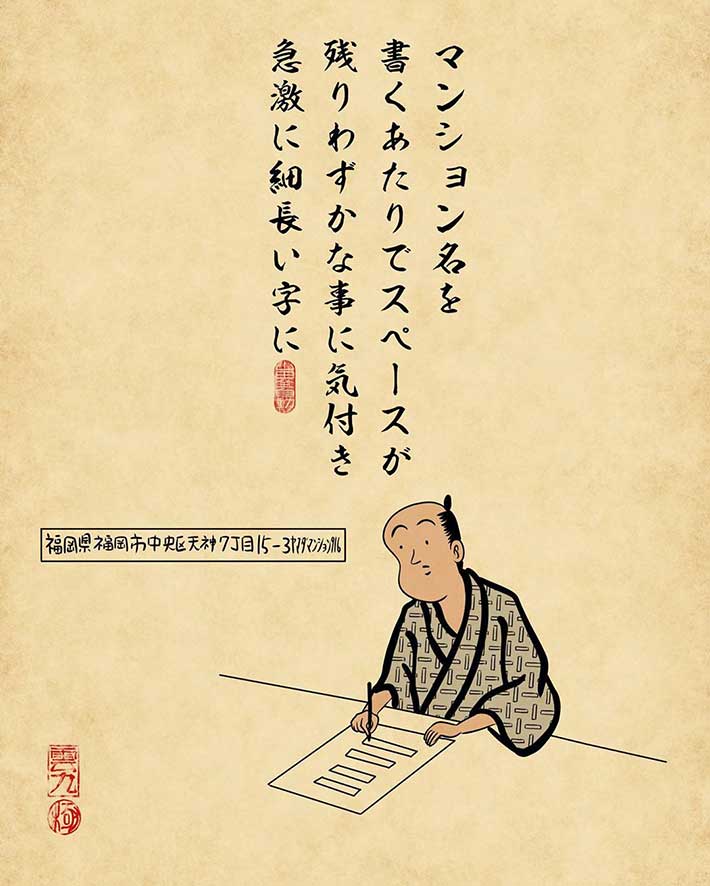 マンション名を
書くあたりでスペースが
残りわずかな事に気付き
急激に細長い字に
福岡県福岡市中央区天神7丁目15-3ヤマダマンション916